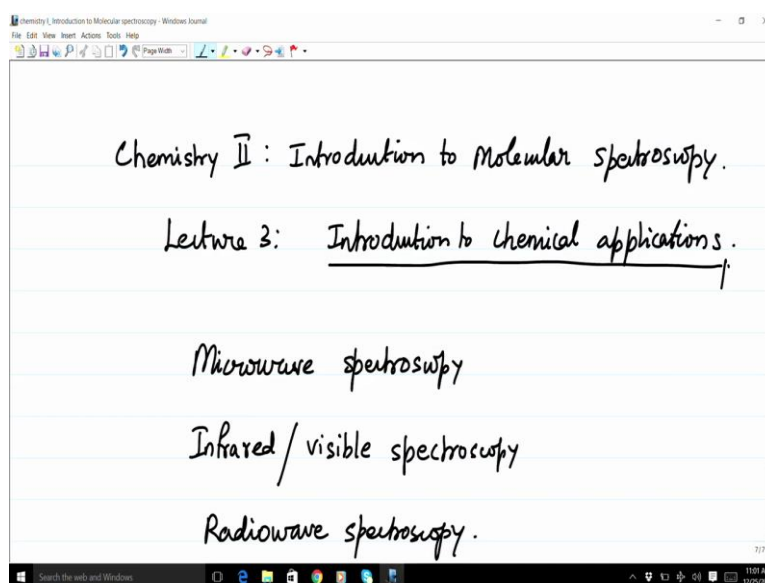 chemistry I_Introduction to Molecular spectroscopy - Windows Journal
File Edit View Insert Actions Tools Help
Page Width
Chemistry II : Introduction to Molecular spectroscopy.
Lecture 3: Introduction to chemical applications.
Microwave spectroscopy
Infrared / visible spectroscopy
Radiowave spectroscopy.
7/7
Search the web and Windows
11:01 A